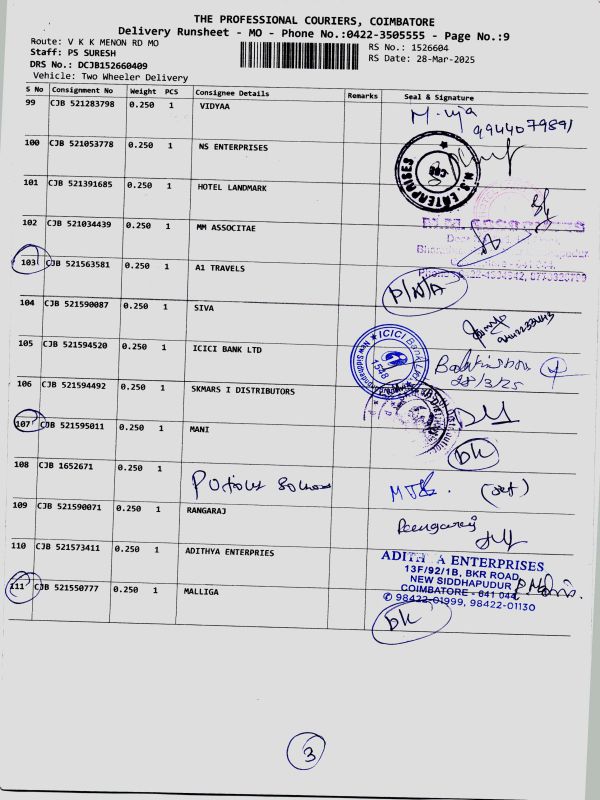 THE PROFESSIONAL COURIERS, COIMBATORE
Delivery Runsheet - MO - Phone No.:0422-3505555 - Page No.:9
Route: V K K MENON RD MO
Staff: PS SURESH
DRS No.: DCJB152660409
Vehicle: Two Wheeler Delivery
RS No.: 1526604
RS Date: 28-Mar-2025
S No Consignment No Weight PCS Consignee Details Remarks Seal & Signature
99 CJB 521283798 0.250 1 VIDYAA
100 CJB 521053778 0.250 1 NS ENTERPRISES
N.S. ENTERPRISES
CBE
101 CJB 521391685 0.250 1 HOTEL LANDMARK
102 CJB 521034439 0.250 1 MM ASSOCITAE
103 CJB 521563581 0.250 1 A1 TRAVELS P/N/A
104 CJB 521590087 0.250 1 SIVA
105 CJB 521594520 0.250 1 ICICI BANK LTD
ICICI Bank Ltd
1548
28/3/25
106 CJB 521594492 0.250 1 SKMARS I DISTRIBUTORS
107 CJB 521595011 0.250 1 MANI DK
108 CJB 1652671 0.250 1
109 CJB 521590071 0.250 1 RANGARAJ
110 CJB 521573411 0.250 1 ADITHYA ENTERPRIES
ADITH A ENTERPRISES
13F/92/1B, BKR ROAD
NEW SIDDHAPUDUR
COIMBATORE - 641 044
✆ 98422-01999, 98422-01130
111 CJB 521550777 0.250 1 MALLIGA DK
3